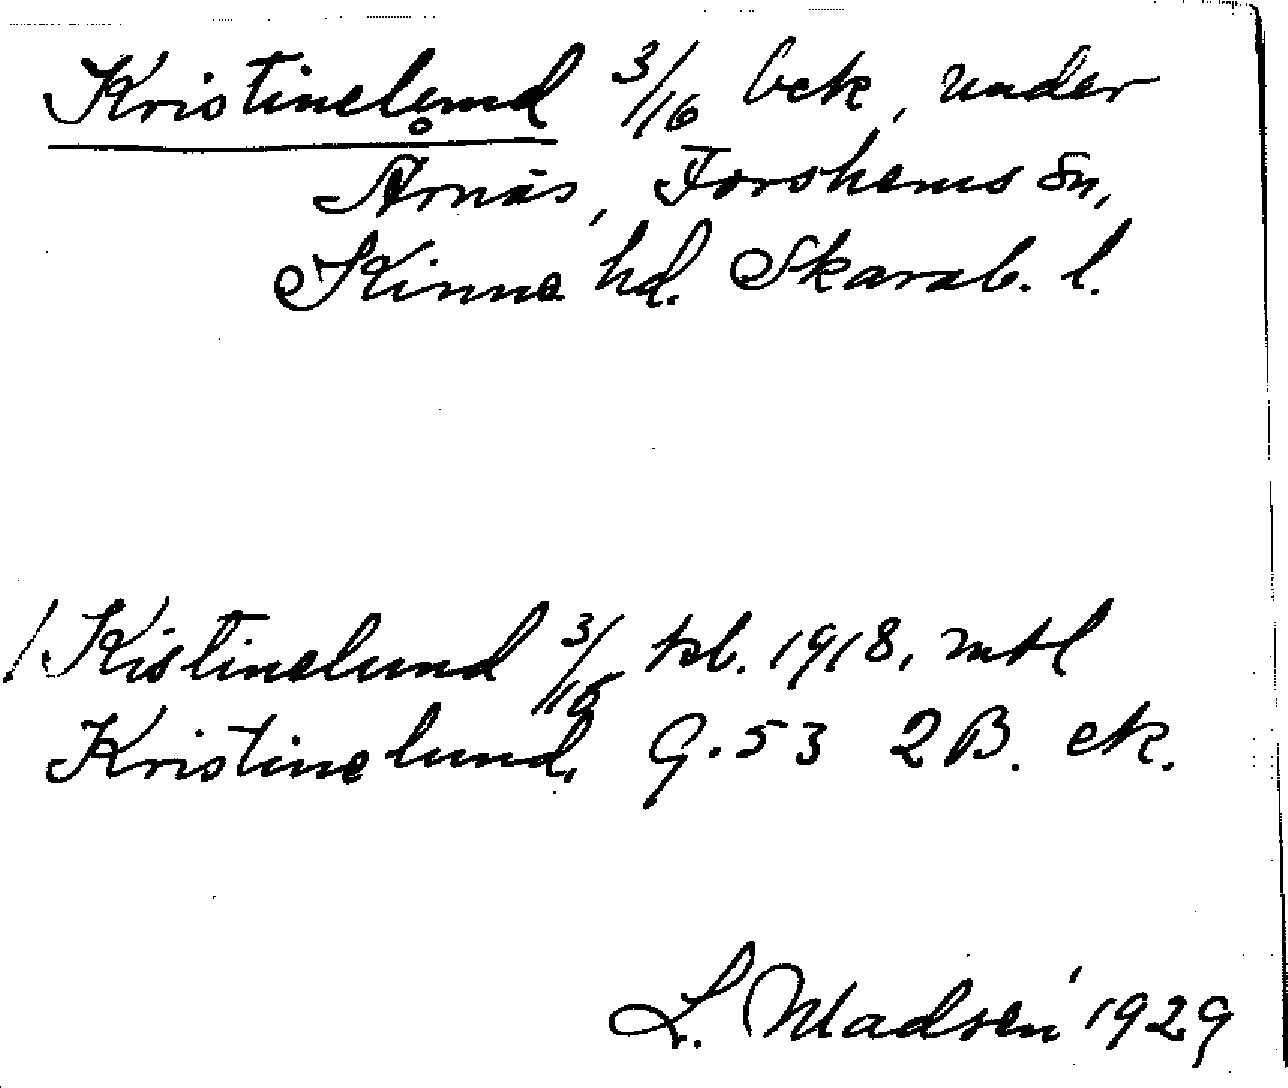 Kristinelund 3/16 bek, under
Årnäs, Forshems sn,
Kinne hd. Skarab. l.
/Kistinelund 3/16 tsb. 1918, mtl
Kristinelund, G. 53 2B. ek.
L. Madsén 1929